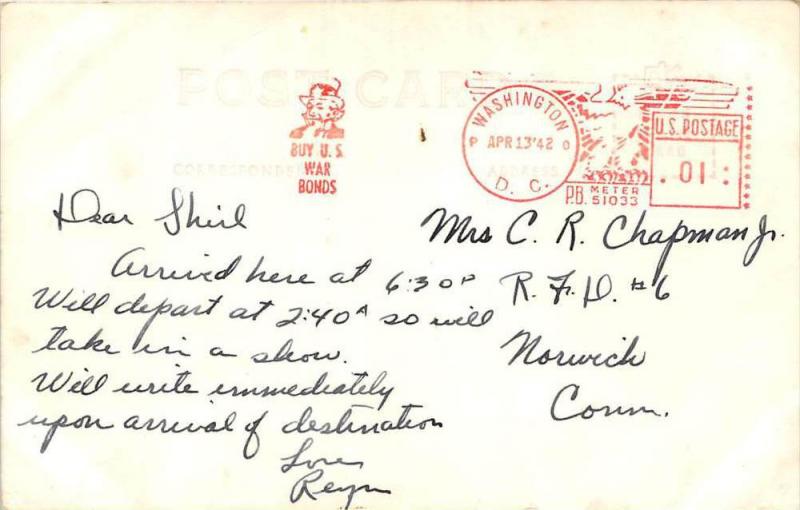 POST CARD
BUY U.S.
WAR
BONDS
WASHINGTON
P APR 13 '42 O
D. C.
U.S. POSTAGE
.01
P.B. METER
51033
CORRESPONDENCE
ADDRESS
Dear Shirl
Arrived here at 6:30P
Will depart at 2:40A so will
take in a show.
Will write immediately
upon arrival of destination
Love
Mrs C. R. Chapman Jr.
R. F. D. #6
Norwich
Conn.